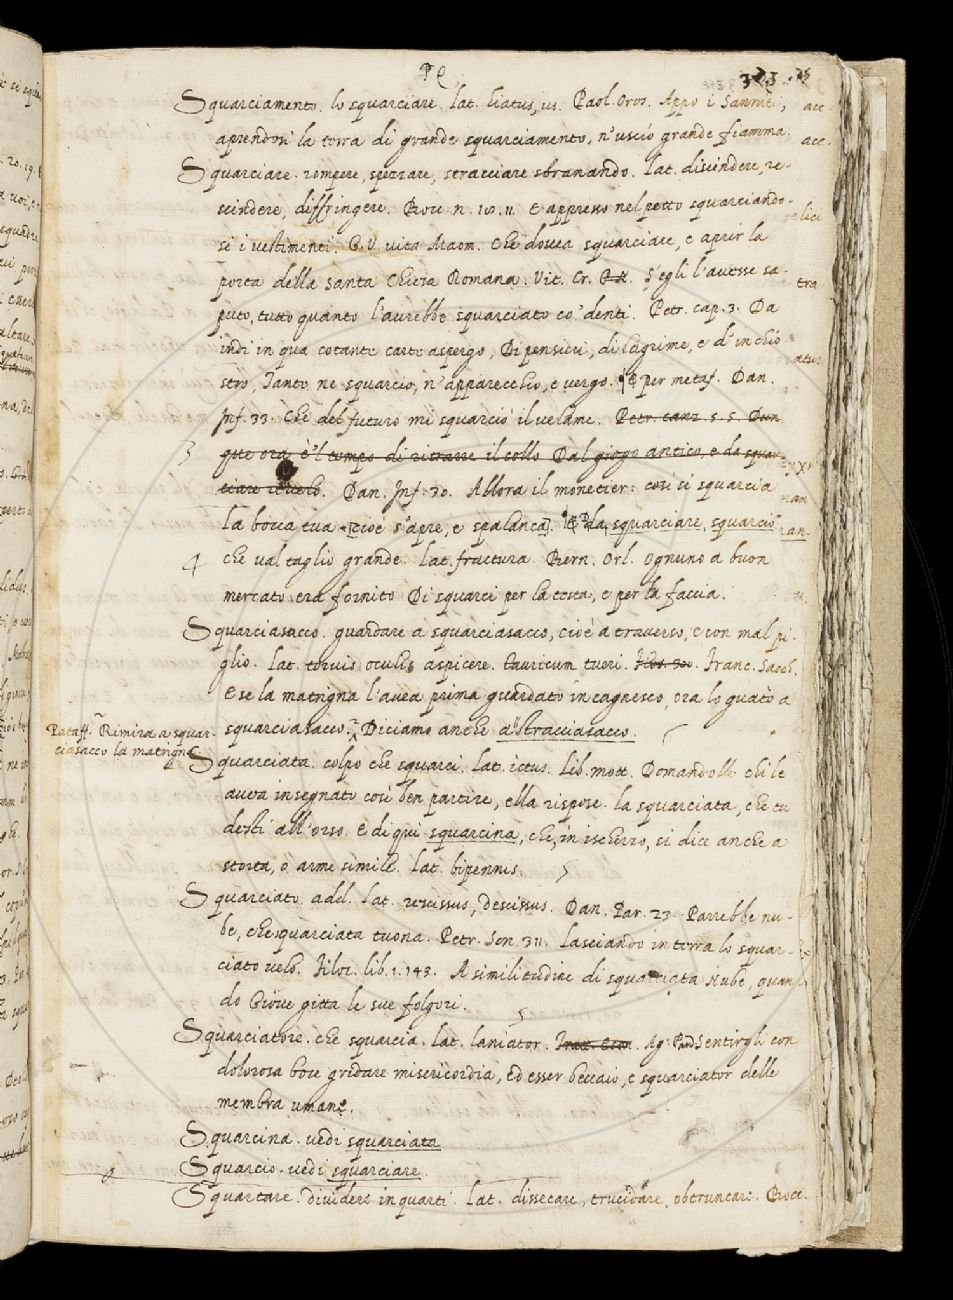 Squarciamento. lo squarciare. lat. hiatus, us. Paol. Oros. Appo i Sanniti,
aprendosi la terra di grande squarciamento, n'uscío grande fiamma.
Squarciare. rompere, spezzare, stracciare sbranando. Lat. discindere, re-
scindere, diffringere. Bocc. n. 10. 11. E appresso nel petto squarciando-
si i vestimenti. G. V. vita Maom. Che dovea squarciare, e aprir la
porta della Santa Chiesa Romana. Vit. Cr. S'egli l'avesse sa-
puto, tutto quanto l'aurebbe squarciato co' denti. Petr. cap. 3. Da
indi in qua cotante carte aspergo, Di pensieri, di lagrime, e d'inchio-
stro, Tante ne squarcio, n'apparecchio, e vergo. E per metaf. Dan.
Inf. 33. Che del futuro mi squarciò il velame. Petr. canz. 5. 5. Dun
que ora è 'l tempo di ritrarre il collo Dal giogo antico, e da squar-
3
ciare il velo. Dan. Inf. 30. Allora il monetier: così si squarcia
La bocca tua [cioè s'apre, e spalanca]. E da squarciare, squarcio
4 che val taglio grande. Lat. fractura. Bern. Orl. Ognuno a buon
mercato era fornito Di squarci per la testa, e per la faccia.
Squarciasacco. guardare a squarciasacco, cioè a traverso, e con mal pi-
glio. Lat. torvis oculis aspicere. tauricum tueri. Franc. Sacch.
E se la matrigna l'avea prima guardato in cagnesco, ora lo guatò a
squarciasacco. Diciamo anche a stracciasacco.
Pataff. Rimira a squar-
ciasacco la matrigna
Squarciata. colpo che squarci. Lat. ictus. Lib. mott. Domandolle chi le
aveva insegnato così ben partire, ella rispose. la squarciata, che tu
desti all'orso. E di qui squarcina, che, in ischerzo, si dice anche a
storta, o arme simile. Lat. bipennis.
Squarciato. add. Lat. rescissus, descissus. Dan. Par. 23. Parrebbe nu-
be, che squarciata tuona. Petr. Son. 311. Lasciando in terra lo squar-
ciato velo. Filoc. lib. 1. 143. A similitudine di squarciata nube, quan-
do Giove gitta le sue folgori.
Squarciatore. che squarcia. Lat. laniator. Sentirgli con
dolorosa boce gridare misericordia, ed esser beccaio, e squarciator delle
membra umane.
Squarcina. vedi squarciata
Squarcio. vedi squarciare.
Squartare. Dividere in quarti. Lat. dissecare, trucidare, obtruncare. Bocc.